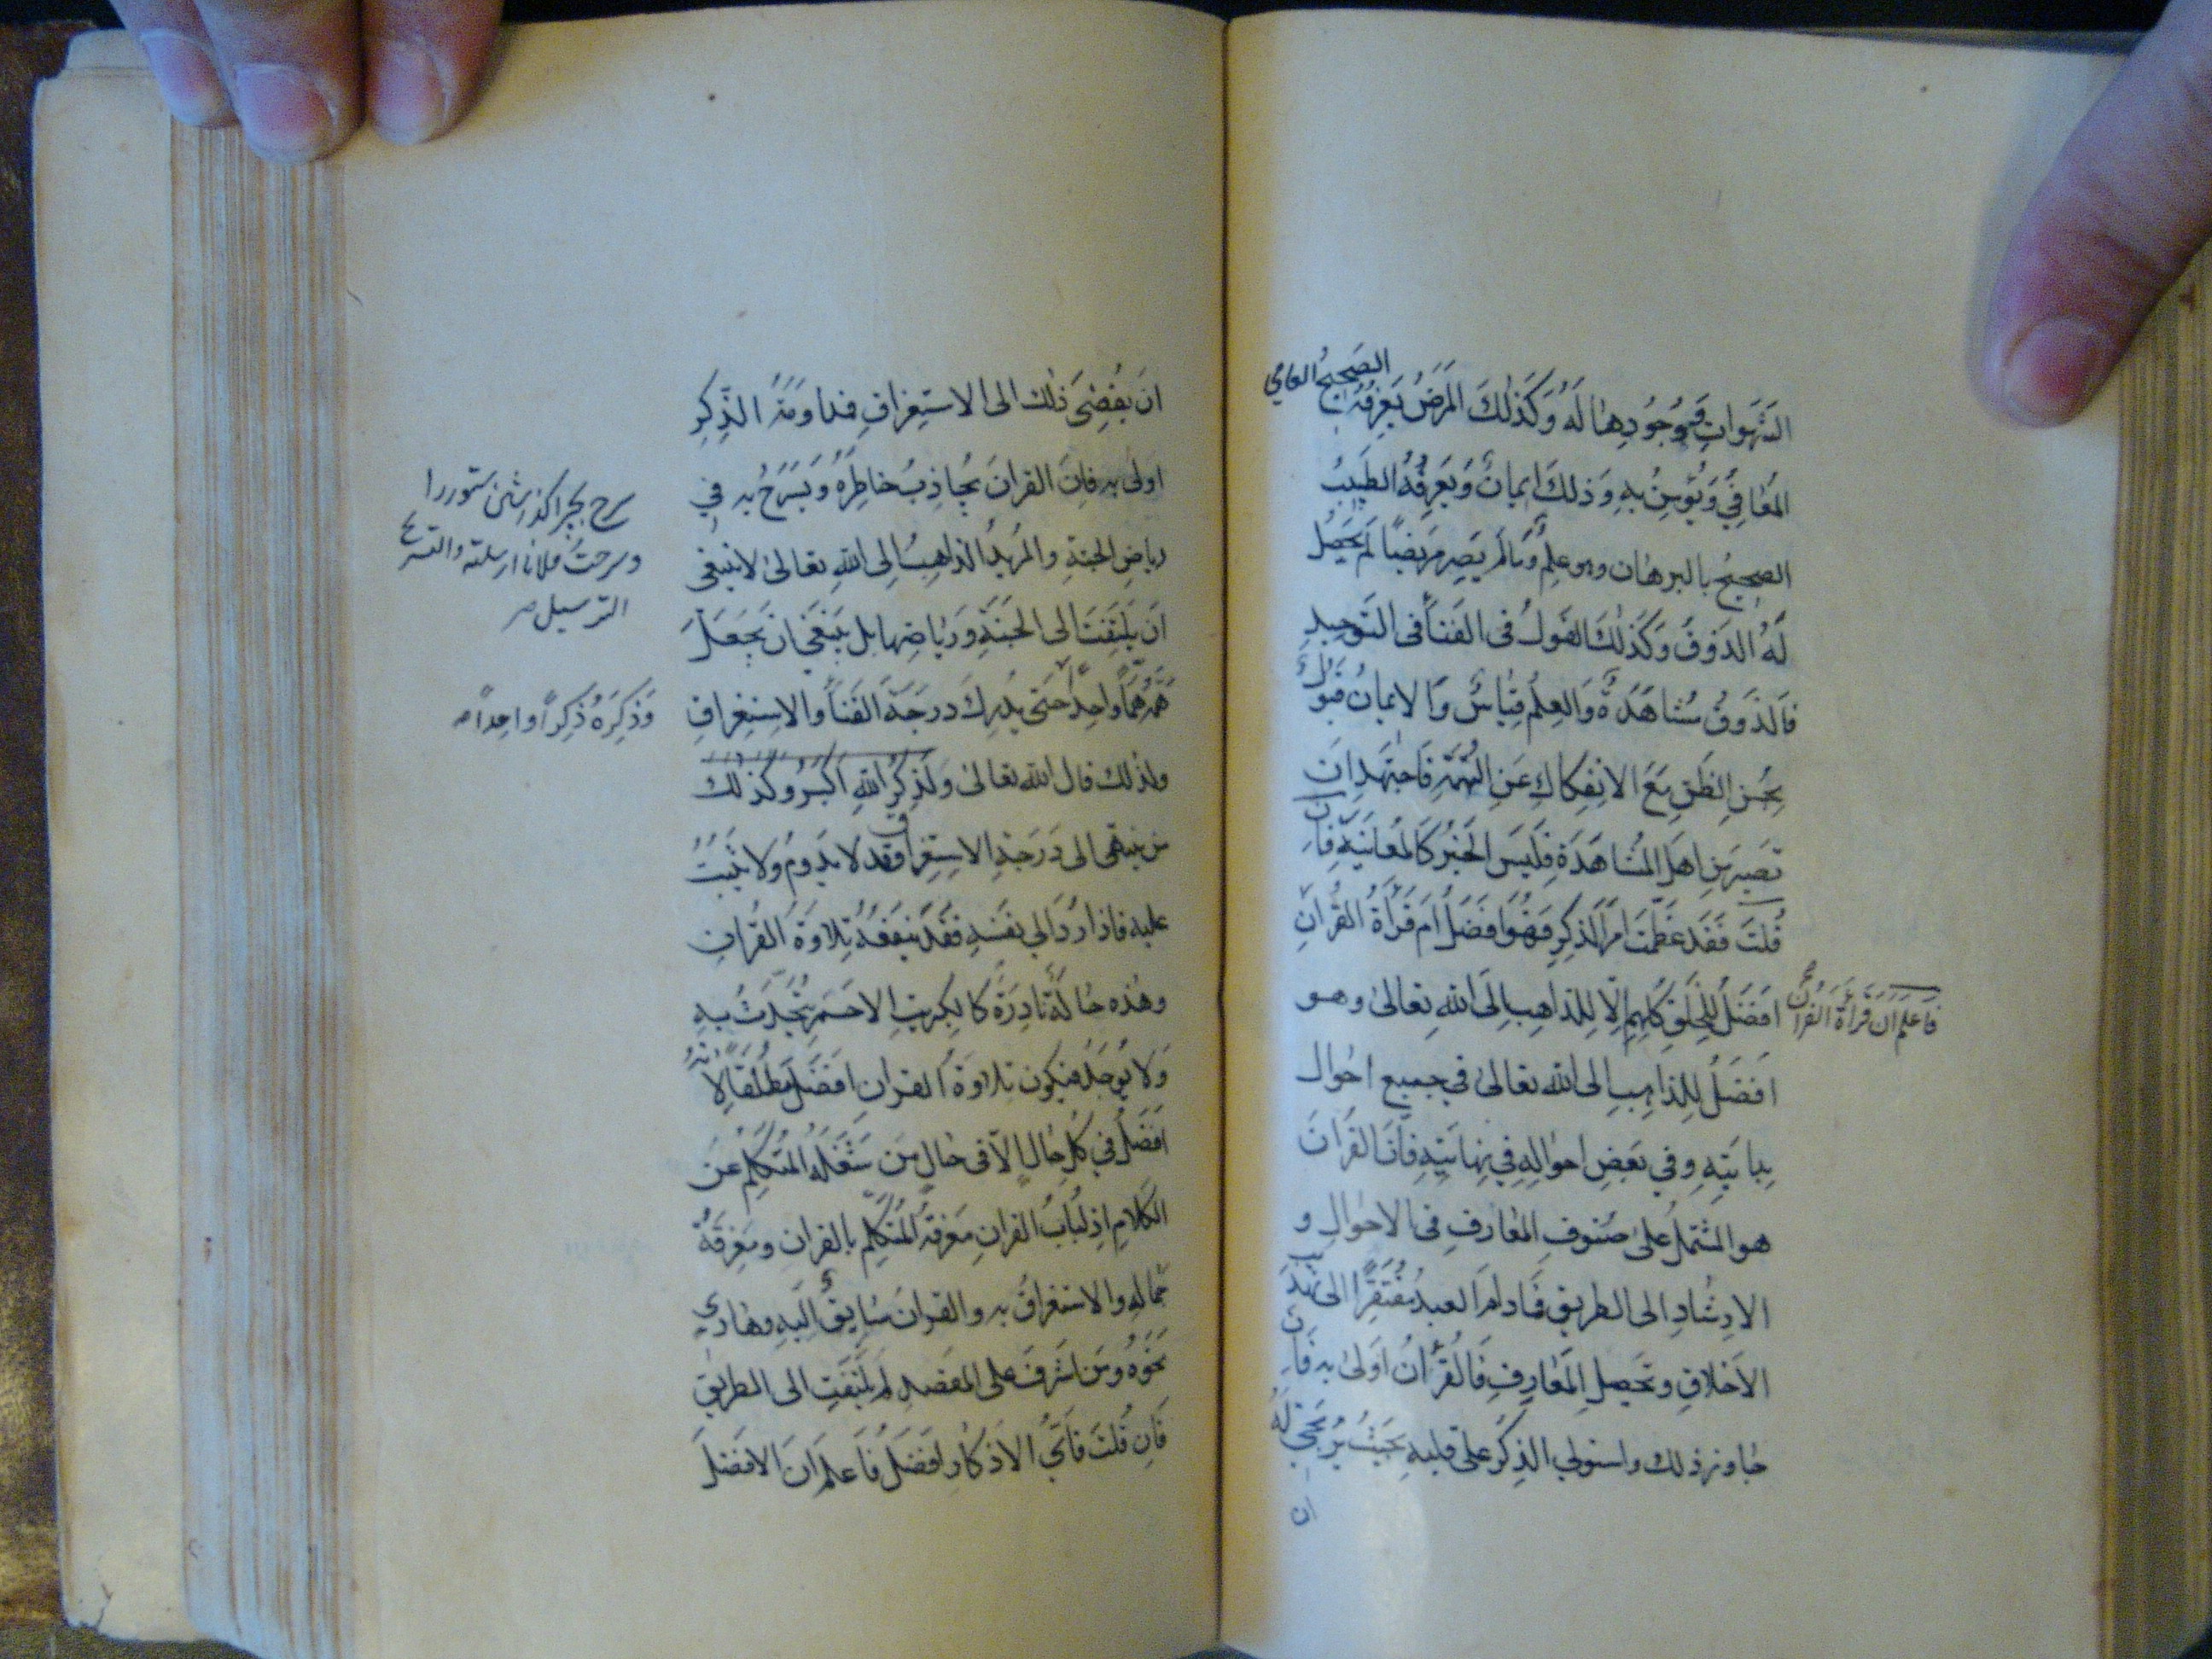 الشهوات فوجودها له وكذلك المرض يعرفه الصحيح العامي
المعافي ويؤمن به وذلك ايمان ويعرفه الطبيب
الصحيح بالبرهان وهو علم ومالم يصر مريضا لم يحصل
له الذوق وكذلك القول فى الفنا فى التوحيد
فالذوق مشاهدة والعلم قياس والايمان قبول
بحسن الظن مع الانفكاك عن التهمة فاجتهد ان
تصير من اهل المشاهدة فليس الخبر كالمعاينة فان
قلت فقد عظمت امر الذكر فهو افضل ام قراة القران
فاعلم ان قراة القران افضل للخلق كلهم الا للذاهب الى الله تعالى وهو
افضل للذاهب الى الله تعالى في جميع احوال
بدايته وفي بعض احواله في نهايته فان القران
هو المشتمل على صنوف المعارف فى الاحوال و
الارشاد الى الطريق فمادام العبد مفتقرا الى تهذيب
الاخلاق وتحصيل المعارف فالقران اولى به فان
جاوز ذلك واستولي الذكر على قلبه بحيث يرتجي له
ان
ان يفضى ذلك الى الاستغراق فمداومة الذكر
اولى به فان القران يجاذب خاطره ويسرح به في
رياض الجنة والمريد الذاهب الى الله تعالى لا ينبغى
ان يلتفت الى الجنة ورياضها بل ينبغي ان يجعل
همه هما واحدا حتى يدرك درجة الفنا والاستغراق
ولذلك قال الله تعالى ولذكر الله اكبر وكذلك
من ينتهى الى درجة الاستغراق فقد لا يدوم ولا يثبت
عليه فاذا رد الى نفسه فقد ينفعه تلاوة القران
وهذه حالة نادرة كالكبريت الاحمر يتحدث به
ولا يوجد فيكون تلاوة القران افضل مطلقا لانه
افضل في كل حال الا فى حال من شغله المتكلم عن
الكلام اذ لباب القران معرفة المتكلم بالقران ومعرفة
جماله والاستغراق به والقران سايق اليه وهادي
نحوه ومن اشرف على المقصد لم يلتفت الى الطريق
فان قلت فاي الاذكار افضل فاعلم ان الافضل
وسرحت فلانا ارسلته والتسريح
الترسيل
وذكره ذكرا واحدا